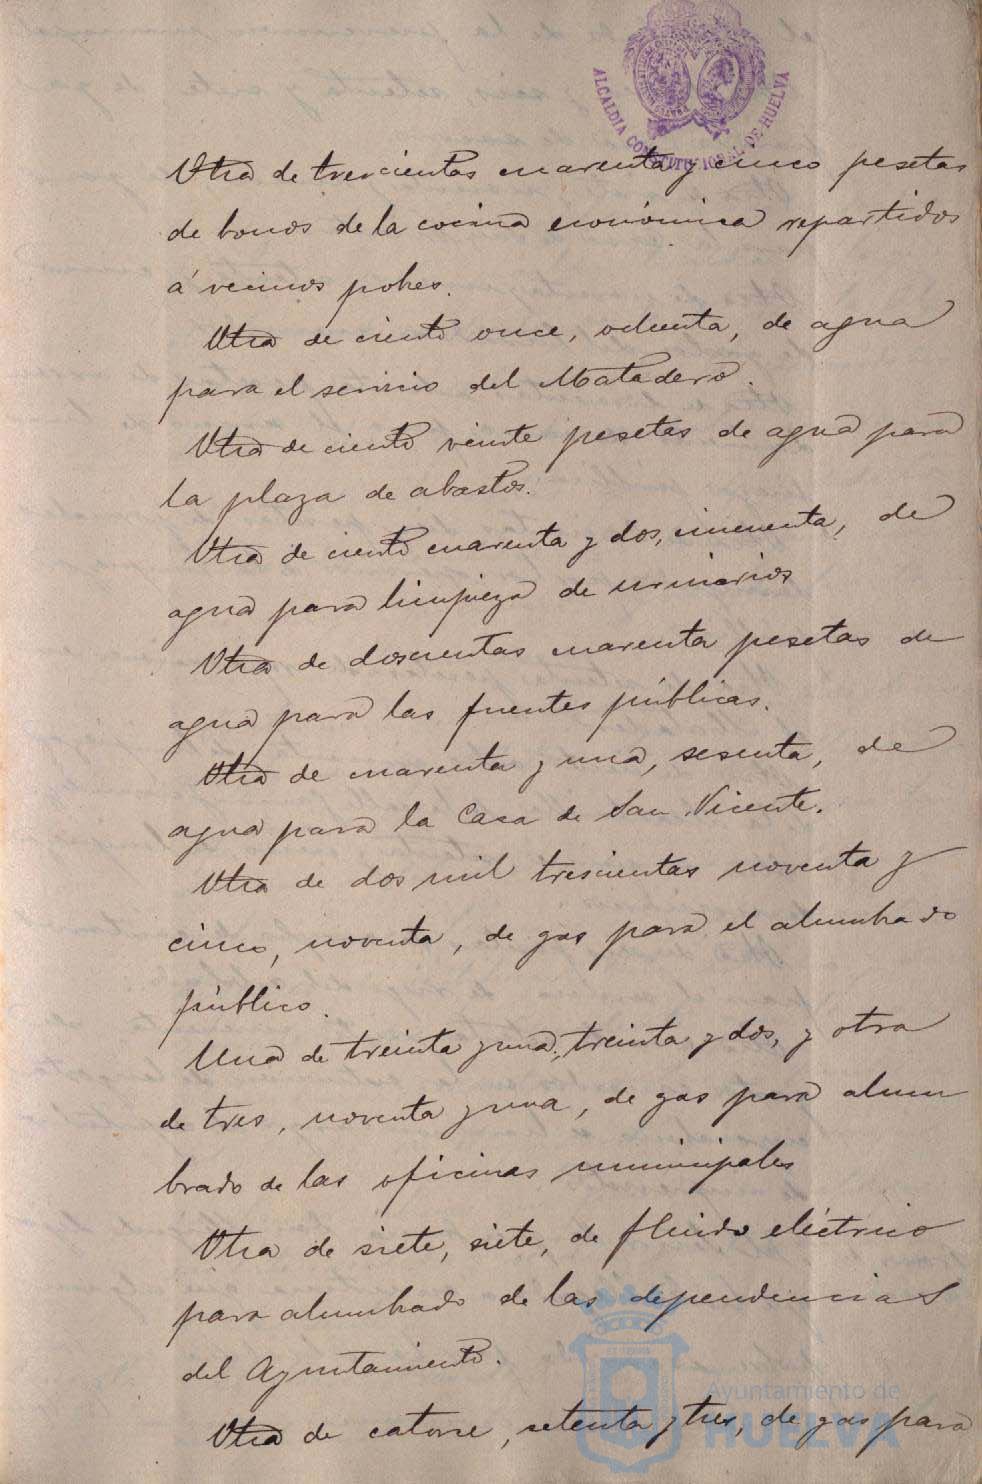 ALCALDIA CONSTITUCIONAL DE HUELVA
Otra de trescientas cuarenta y cinco pesetas
de bonos de la cocina económica repartidos
á vecinos pobres.
Otra de ciento once, ochenta, de agua
para el servicio del Matadero.
Otra de ciento veinte pesetas de agua para
la plaza de abastos.
Otra de ciento cuarenta y dos, cincuenta, de
agua para limpieza de urinarios
Otra de doscientas cuarenta pesetas de
agua para las fuentes públicas.
Otra de cuarenta y una, sesenta, de
agua para la Casa de San Vicente.
Otra de dos mil trescientas noventa y
cinco, noventa, de gas para el alumbrado
público.
Una de treinta y una, treinta y dos, y otra
de tres, noventa y una, de gas para alum
brado de las oficinas municipales
Otra de siete, siete, de fluido eléctrico
para alumbrado de las dependencias
del Ayuntamiento.
Otra de catorce, setenta y tres, de gas para
Ayuntamiento de
HUELVA